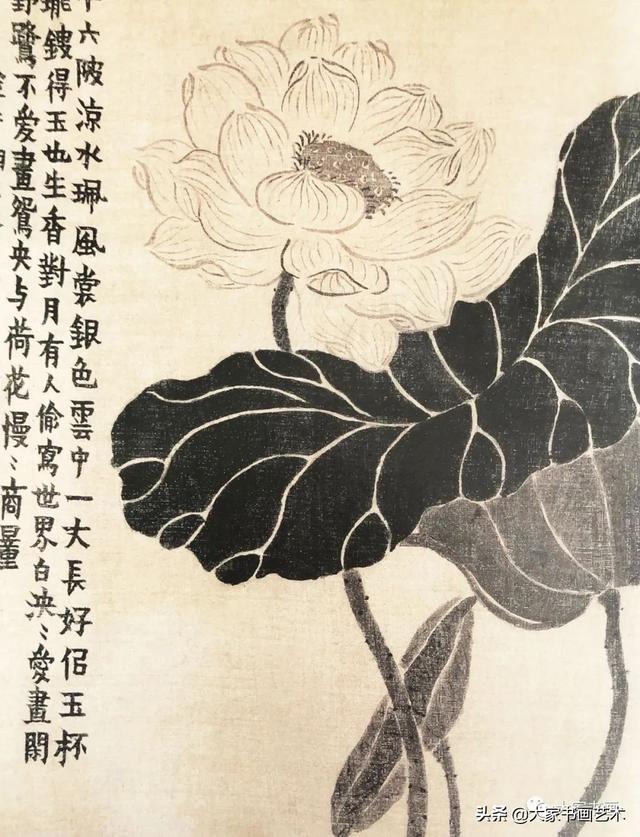 十六陂涼水珮風裳銀色雲中一大長好侣玉杯
瓏鏤得玉也生香對月有人偷寫世界白泱〻愛畫閑
野鷺不愛畫鴛央与荷花慢〻商量
头条 @大家书画艺术